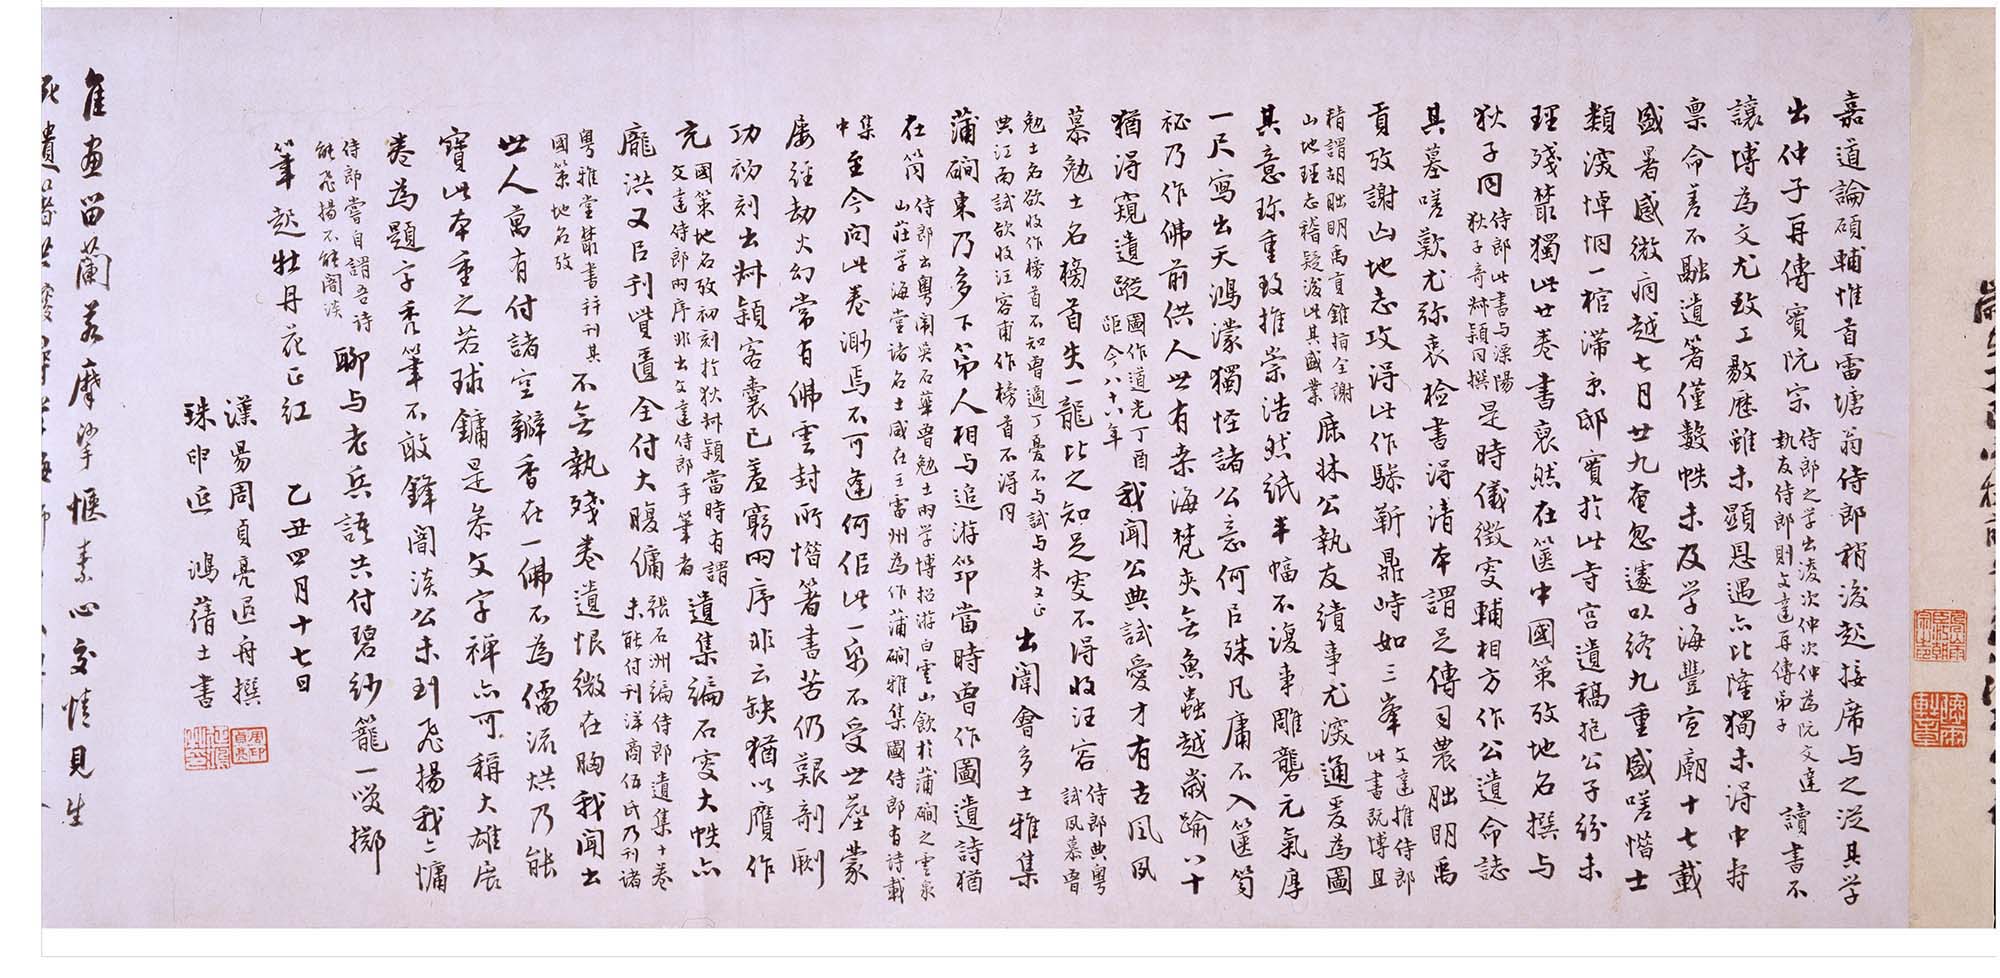 嘉道論碩輔惟首雷塘翁侍郎稍後起接席与之從其学
出仲子再傳賓阮宗侍郎之学出淩次仲次仲為阮文達執友侍郎則文達再傳弟子讀書不
讓博為文尤致工敭歷雖未顯恩遇亦比隆獨未得中壽
稟命差不融遺箸僅數帙未及学海豐宣廟十七載
盛暑感微痾越七月廿九奄忽遽以終九重盛嗟惜士
類深悼恫一棺滯京邸實於此寺宮遺稿抱公子紛未
理殘叢獨此廿卷書裒然在篋中國策攷地名撰与
狄子同侍郎此書与溧陽狄子奇叔穎同撰是時儀徵叟輔相方作公遺命誌
其墓嗟歎尤弥衷检書得清本謂足傳司農朏明禹
貢攷謝山地志攻得此作驂靳鼎峙如三峯文達推侍郎此書既博且
精謂胡朏明禹貢錐指全謝山地理志稽疑後此其盛業鹿牀公執友績事尤深通爰為圖
其意珎重致推崇浩然紙半幅不復事雕礱元氣厚
一尺寫出天鴻濛獨怪諸公意何㠯殊凡庸不入篋笥
秘乃作佛前供人世有桒海梵夾無魚蟲越歲踰八十
猶得窺遺蹤圖作道光丁酉距今八十八年我聞公典試愛才有古風夙
慕勉士名榜首失一龍比之知足叟不得收汪容侍郎典粤試夙慕曾
勉士名欲收作榜首不知曾適丁憂不与試与朱文正典江南試欲收汪容甫作榜首不得同出闈會多士雅集
蒲磵東乃多下第人相与追游筇當時曾作圖遺詩猶
在笥侍郎出粤闈吳石華曾勉士两学博招游白雲山飲於蒲磵之雲泉山莊学海堂諸名士咸在王雷州為作蒲磵雅集國侍郎有詩載
集中至今問此卷渺焉不可逢何佀此一帋不受世塵蒙
屡經劫火幻常有佛雲封所惜箸書苦仍艱剞劂
功初刻出叔穎客囊已羞窮两序非云缺猶以贋作
充國策地名攷初刻於狄叔穎當時有謂文達侍郎两序非出文達侍郎手筆者遺集編石叟大帙亦
龐洪又㠯刊貲匱全付大腹傭張石洲編侍郎遺集十卷未能付刊洋商伍氏乃刊诸
粤雅堂叢書并刊其國策地名攷不無執殘卷遺恨微在胸我闻出
世人萬有付諸空瓣香在一佛不為儒流烘乃能
寶此本重之若球鏞是叅文字禅亦可稱大雄展
卷為題字秃筆不敢鋒闇淡公未到飛揚我亦慵
侍郎嘗自謂吾诗能飛揚不能闇淡聊与老兵語共付碧紗籠一笑擲
筆起牡丹花正紅　乙丑四月十七日
漢昜周貞亮退舟撰
珠申延鴻蒨士書
隹画畱蘭若摩挲惬素心交情見生